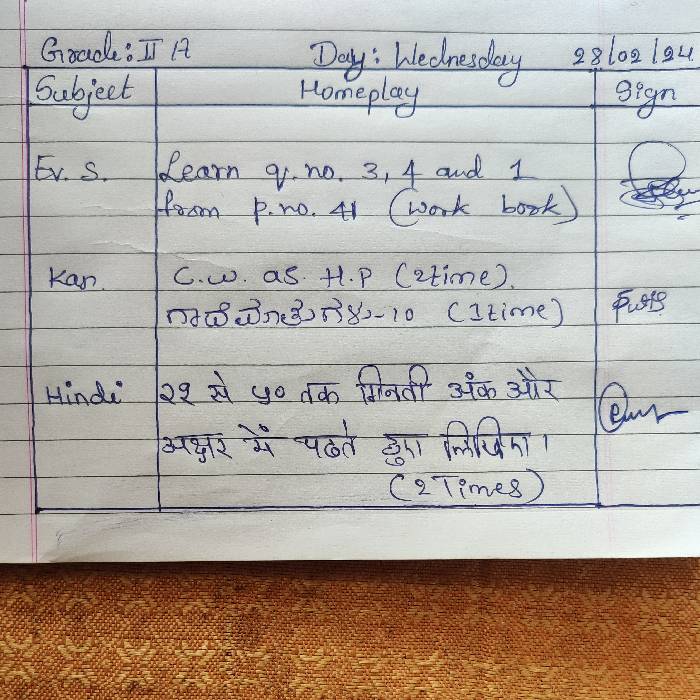 Grade: II A Day: Wednesday 28/02/24
Subject Homeplay Sign
Ev. S. Learn q. no. 3, 4 and 1
from p. no. 41 (work book)
Kan. C.W. as H.P (2time).
ಗಾದೆಮಾತುಗಳು-10 (1time)
Hindi २१ से ५० तक गिनती अंक और
अक्षर में पढते हुए लिखिए।
(2 Times)